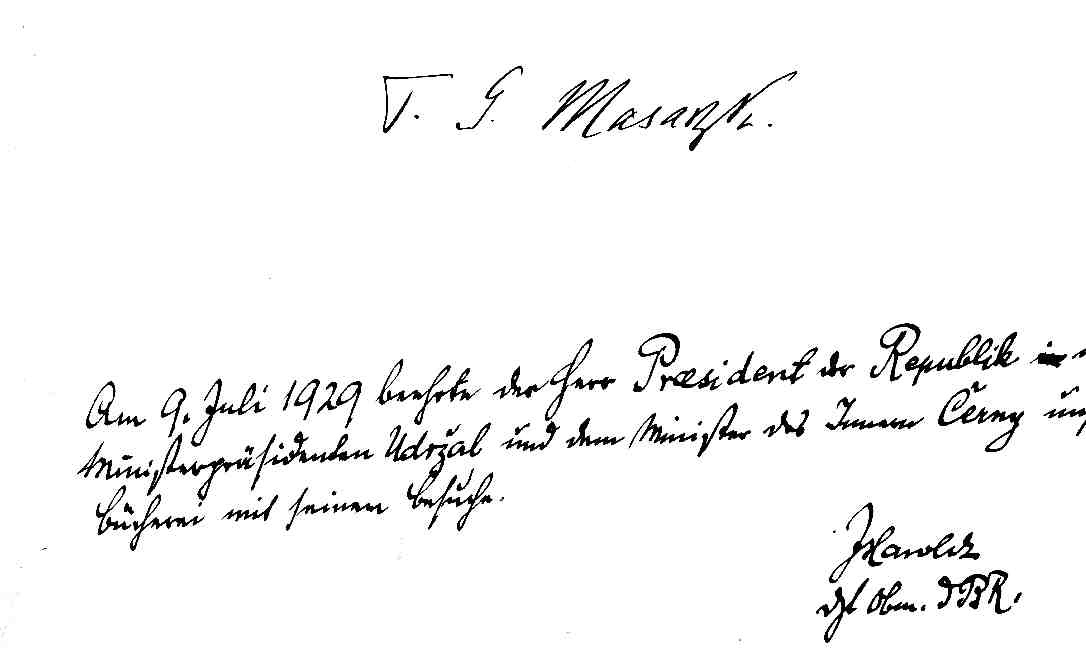 T. G. Masaryk.
Am 9. Juli 1929 beehrte der Herr Præsident der Republik
Ministerpräsidenten Udržal und dem Minister des Innern Černy
Bücherei mit seinem Besuche.
dzt Obm. d